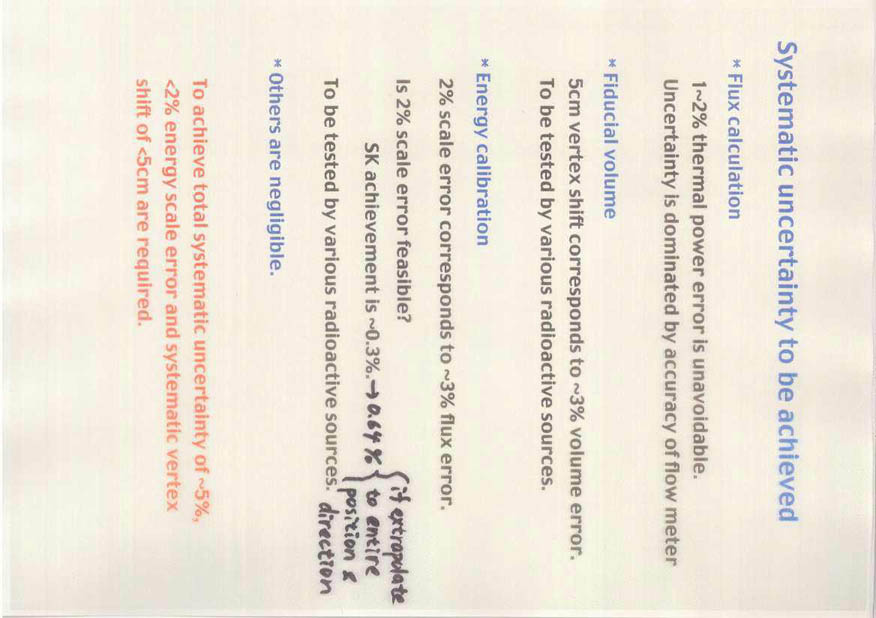 Systematic uncertainty to be achieved
* Flux calculation
1~2% thermal power error is unavoidable.
Uncertainty is dominated by accuracy of flow meter
* Fiducial volume
5cm vertex shift corresponds to ~3% volume error.
To be tested by various radioactive sources.
* Energy calibration
2% scale error corresponds to ~3% flux error.
Is 2% scale error feasible?
SK achievement is ~0.3%. → 0.64% { if extrapolate
to entire
position &
direction
To be tested by various radioactive sources.
* Others are negligible.
To achieve total systematic uncertainty of ~5%,
<2% energy scale error and systematic vertex
shift of <5cm are required.